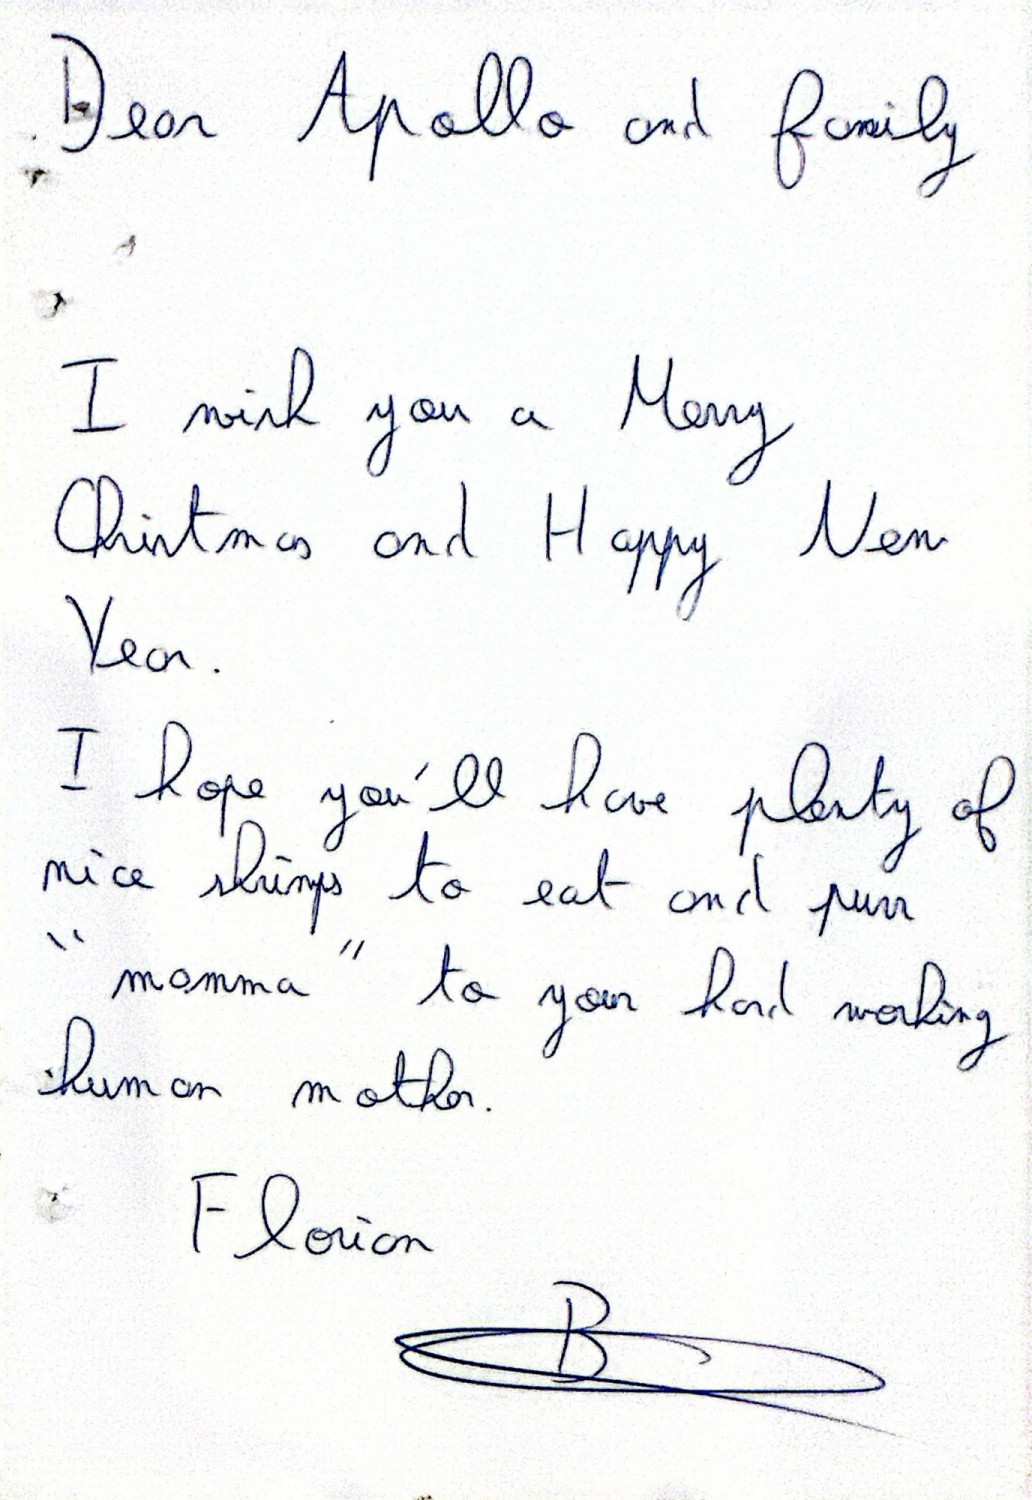 Dear Apollo and family
I wish you a Merry
Christmas and Happy New
Year.
I hope you'll have plenty of
nice shrimps to eat and purr
"momma" to your hard working
human mother.
Florian
B